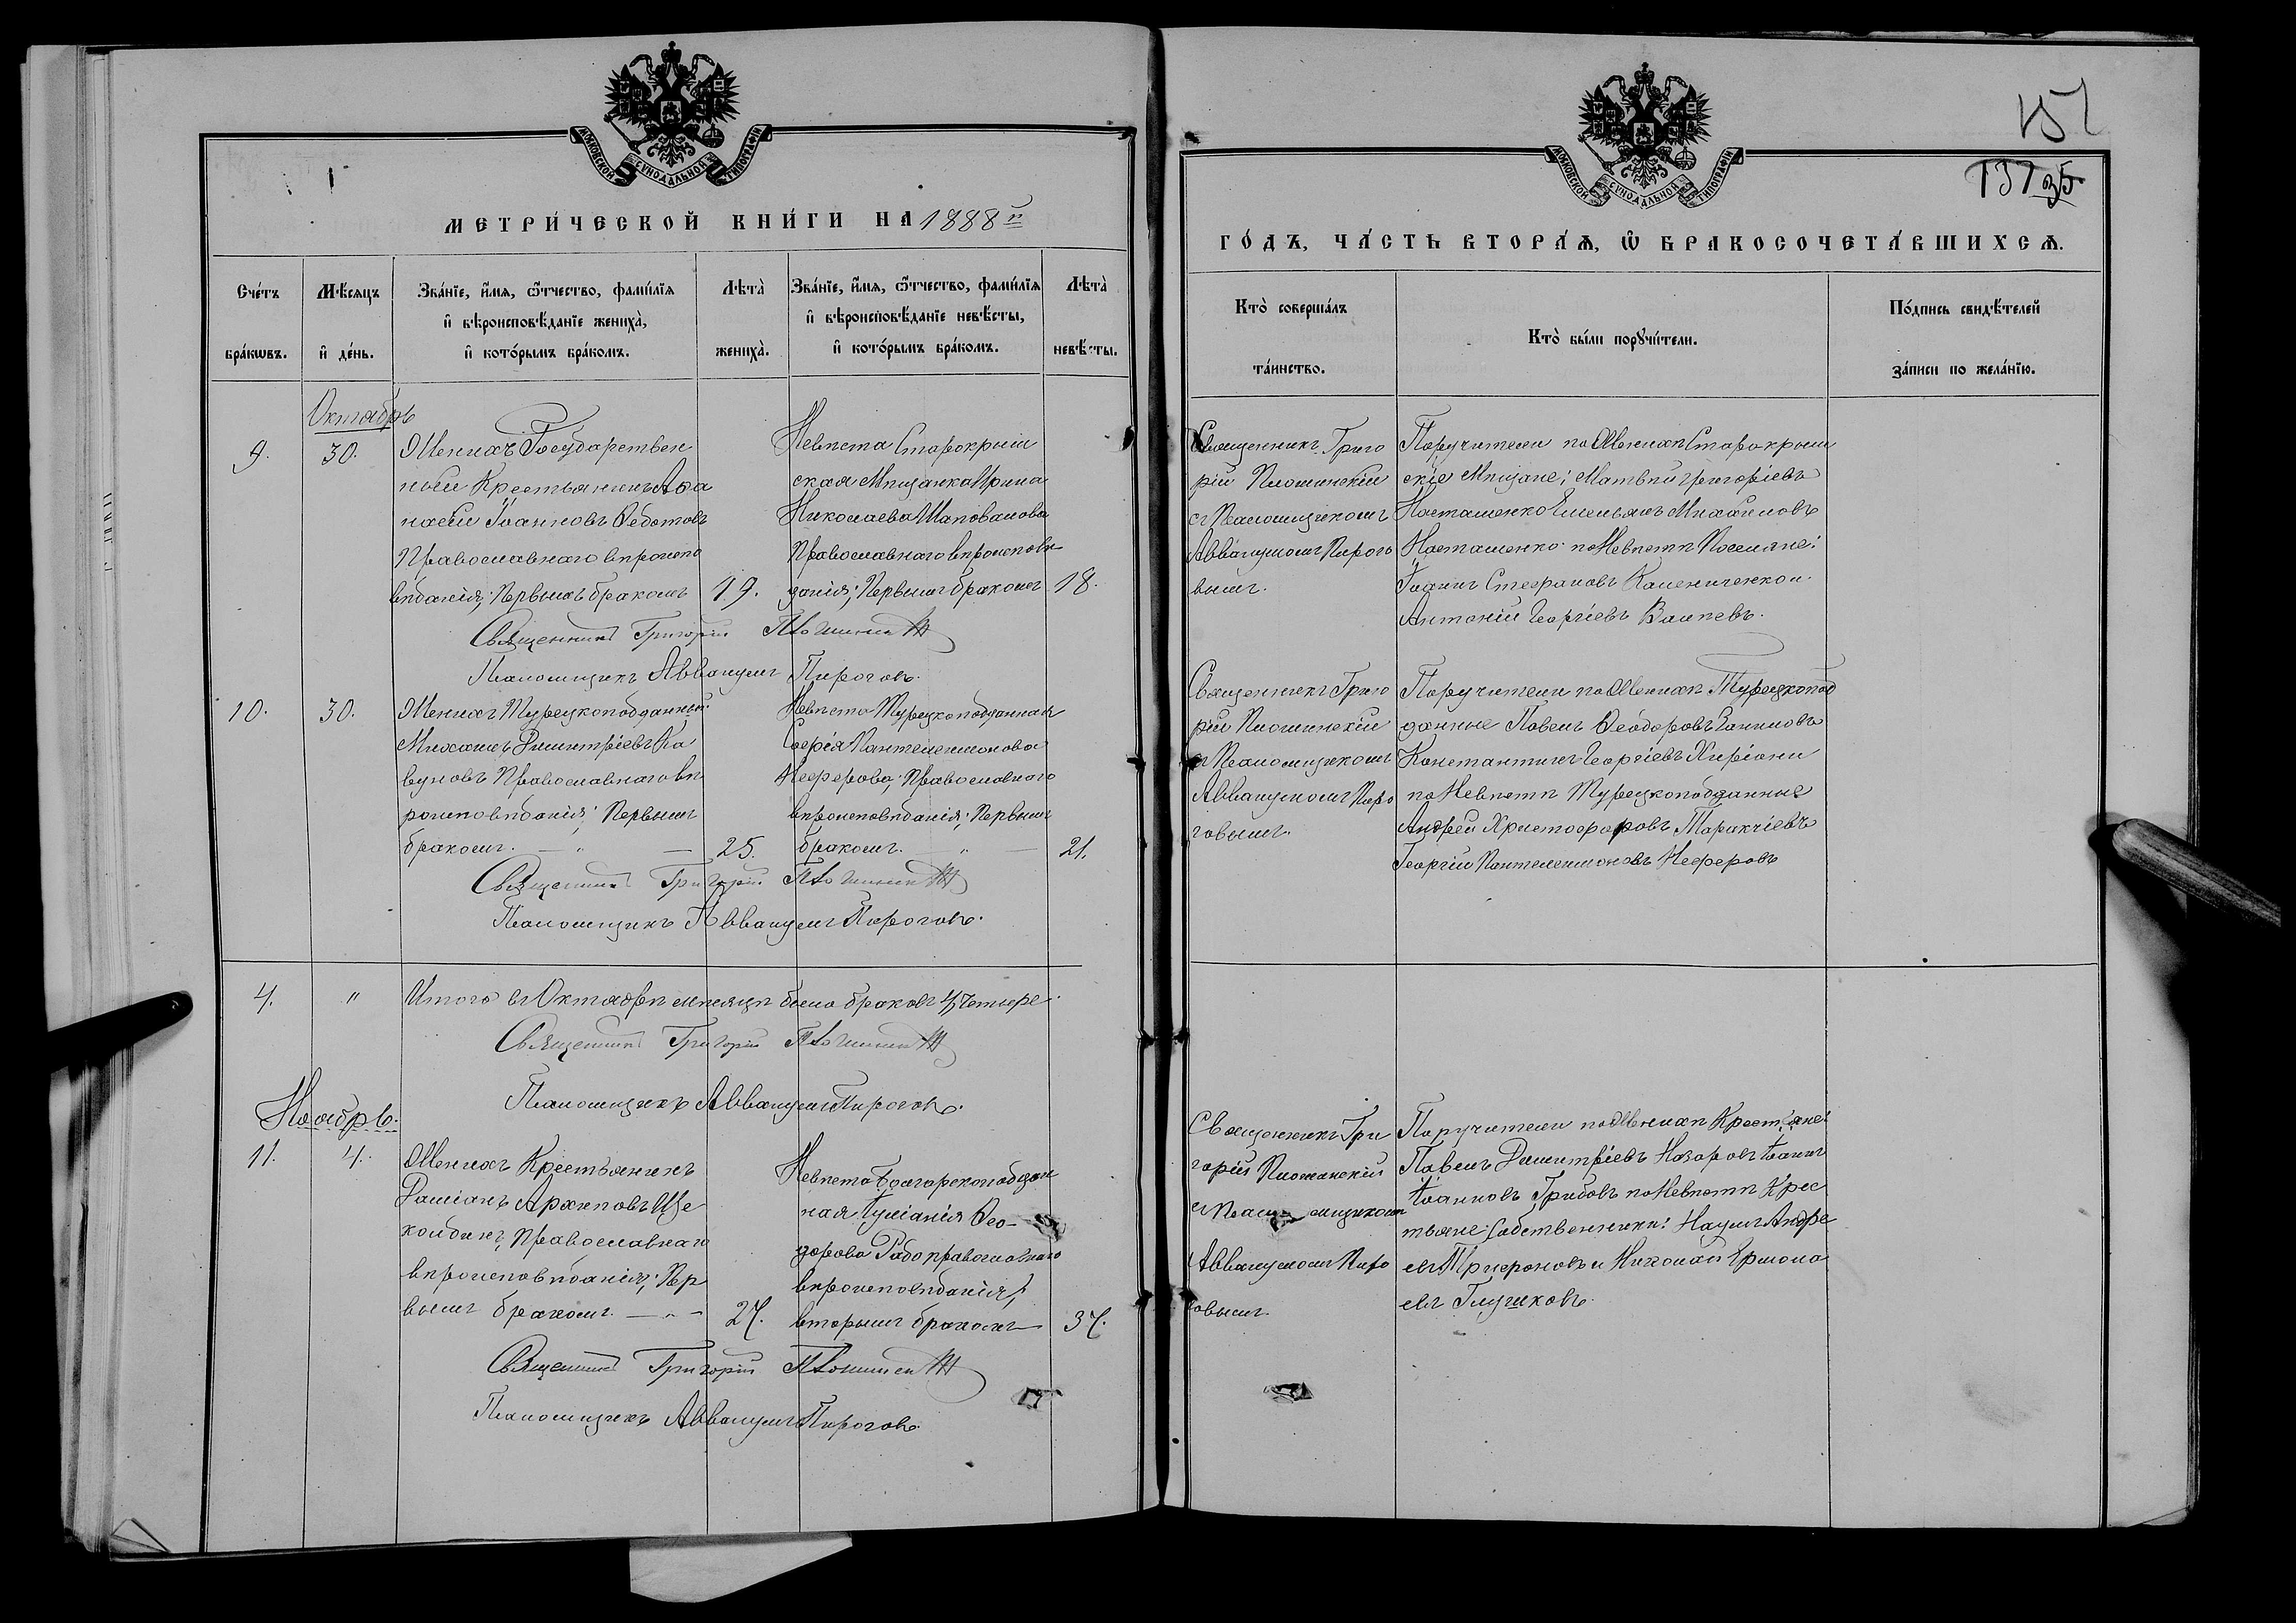 МОСКОВСКОЙ СѴНОДАЛЬНОЙ ТИПОГРАФІИ
МЕТРИ́ЧЕСКОЙ КНИ́ГИ НА 1888й
Сче́тъ бра́кωвъ.
Мѣ́сяцъ и҆ де́нь.
Зва́нїе, и҆́мя, ѻ҆́тчество, фами́лїя
и҆ вѣроисповѣ́данїе жениха̀,
и҆ кото́рымъ бра́комъ.
Лѣта̀ жениха̀.
Зва́нїе, и҆́мя, ѻ҆́тчество, фами́лїя
и҆ вѣроисповѣ́данїе невѣ́сты,
и҆ кото́рымъ бра́комъ.
Лѣта̀ невѣ́сты.
Октябрь
9.
30.
Женихъ Государствен
ный Крестьянинъ Аѳа
насій Іоанновъ Ѳедотовъ
Православнаго вѣроиспо
вѣданія; Первымъ бракомъ
19.
Невѣста Старокрым
ская Мѣщанка Ирина
Николаева Шаповалова
Православнаго вѣроисповѣ
данія; Первымъ бракомъ
18.
Священникъ Григорій
Псаломщикъ Аввакумъ Пироговъ.
10.
30.
Женихъ Турецкоподданный
Михаилъ Димитріевъ Ка
вуновъ Православнаго вѣ
роисповѣданія; Первымъ
бракомъ. — „ —
25.
Невѣста Турецкоподданная
Софія Пантелеимонова
Неферова; Православнаго
вѣроисповѣданія; Первымъ
бракомъ. „ —
21.
Священникъ Григорій
Псаломщикъ Аввакумъ Пироговъ.
4.
„
Итого въ Октябрѣ мѣсяцѣ было браковъ 4, Четыре.
Священникъ Григорій
Псаломщикъ Аввакумъ Пироговъ.
Ноябрь.
11.
4.
Женихъ Крестьянинъ
Даміанъ Архиповъ Ще
колдинъ, Православнаго
вѣроисповѣданія; Пер
вымъ бракомъ. — „ —
27.
Невѣста Болгарскоподдан
ная Іуліанія Ѳео-
дорова Радо православнаго
вѣроисповѣданія;
вторымъ бракомъ
37.
Священникъ Григорій
Псаломщикъ Аввакумъ Пироговъ.
МОСКОВСКОЙ СѴНОДАЛЬНОЙ ТИПОГРАФІИ
35.
ГО́ДЪ, ЧА́СТЬ ВТОРА́Ѧ, Ѡ҆ БРАКОСОЧЕТА́ВШИХСѦ.
Кто̀ соверша́лъ та́инство.
Кто̀ бы́ли порꙋчи́тели.
По́дпись свидѣ́телей за́писи по жела́нїю.
Священникъ Григо
рій
съ Псаломщикомъ
Аввакумомъ Пирого
вымъ.
Поручители по Женихѣ Старокрым
скіе Мѣщане: Матвѣй Григоріевъ
Насташенко Емельянъ Михаиловъ
Насташенко по Невѣстѣ Поселяне:
Іоаннъ Стефановъ
Антоній Георгіевъ
Священникъ Григо
рій
съ Псаломщикомъ
Аввакумомъ Пиро
говымъ.
Поручители по Женихѣ Турецкопод
данные Павелъ Ѳеодоровъ
Константинъ Георгіевъ Хиріони
по Невѣстѣ Турецкоподданные
Андрей Христофоровъ Таракчіевъ
Георгій Пантелеимоновъ Неферовъ
Священникъ Гри
горій
съ Псаломщикомъ
Аввакумомъ Пиро
говымъ.
Поручители по Женихѣ Крестьяне:
Павелъ Димитріевъ Назаровъ Іоаннъ
Іоанновъ Грибовъ по Невѣстѣ Крес
тьяне Собственники: Наумъ Андре
евъ Трифоновъ и Николай Ермола
евъ Глушковъ.